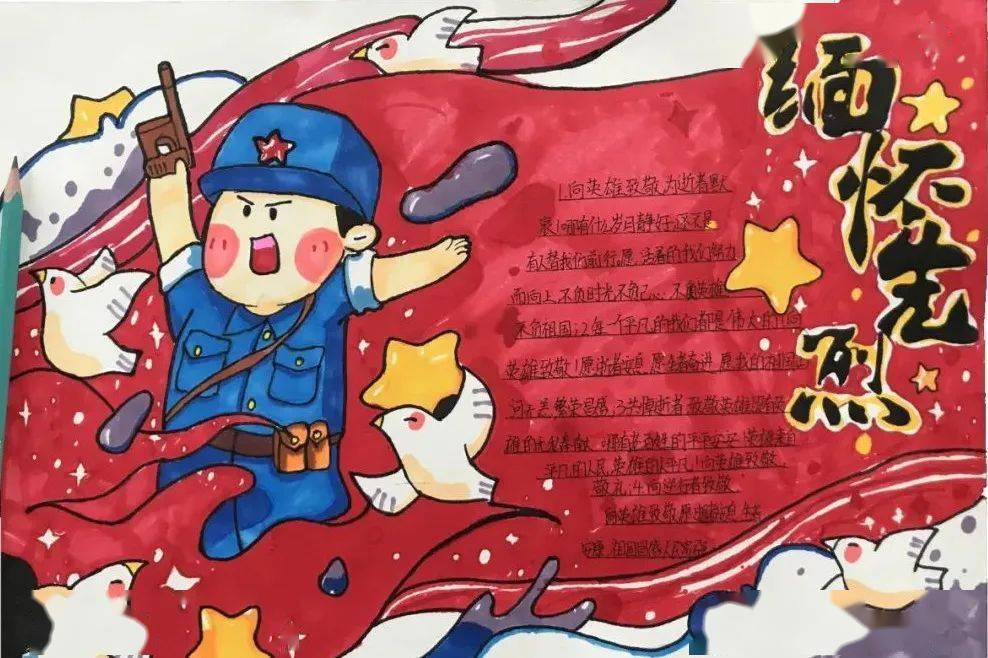 缅怀先烈
1.向英雄致敬,为逝者默
哀!哪有什么岁月静好,还不是
有人替我们前行。愿,活着的我们努力
而向上,不负时光不负己…,不负英雄
不负祖国;2.每一个平凡的我们都是伟大的!向
英雄致敬!愿逝者安息,愿生者奋进,愿我的祖国
繁荣昌盛,3.共悼逝者 致敬英雄没有英
雄的 哪有 的平平安安!英雄来自
平凡的人民,英雄的 平凡!向英雄致敬,
敬礼,4.向逆行者致敬
向英雄致敬,愿 生者
祖国